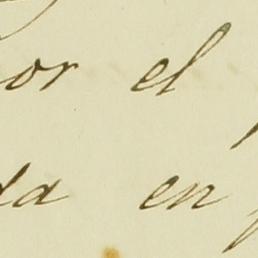 or el
da en